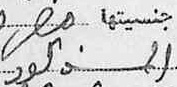 جنسيتها مصر
المذكور